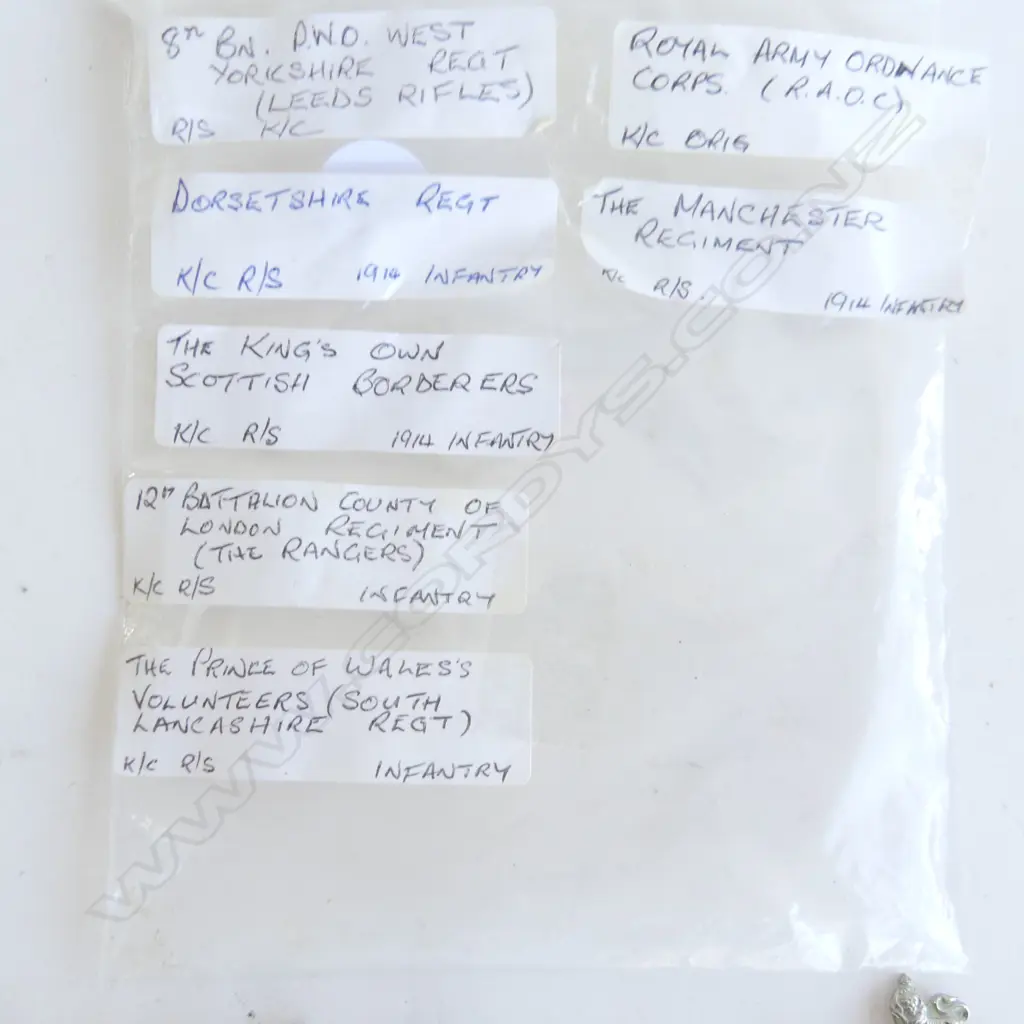 8TH BN. P.W.O. WEST
YORKSHIRE REGT
(LEEDS RIFLES)
R/S K/C
DORSETSHIRE REGT
K/C R/S 1914 INFANTRY
THE KING'S OWN
SCOTTISH BORDERERS
K/C R/S 1914 INFANTRY
12TH BATTALION COUNTY OF
LONDON REGIMENT
(THE RANGERS)
K/C R/S INFANTRY
THE PRINCE OF WALES'S
VOLUNTEERS (SOUTH
LANCASHIRE REGT)
K/C R/S INFANTRY
ROYAL ARMY ORDNANCE
CORPS. (R.A.O.C)
K/C ORIG
THE MANCHESTER
REGIMENT
K/C R/S. 1914 INFANTRY
WWW.CORDYS.CO.NZ